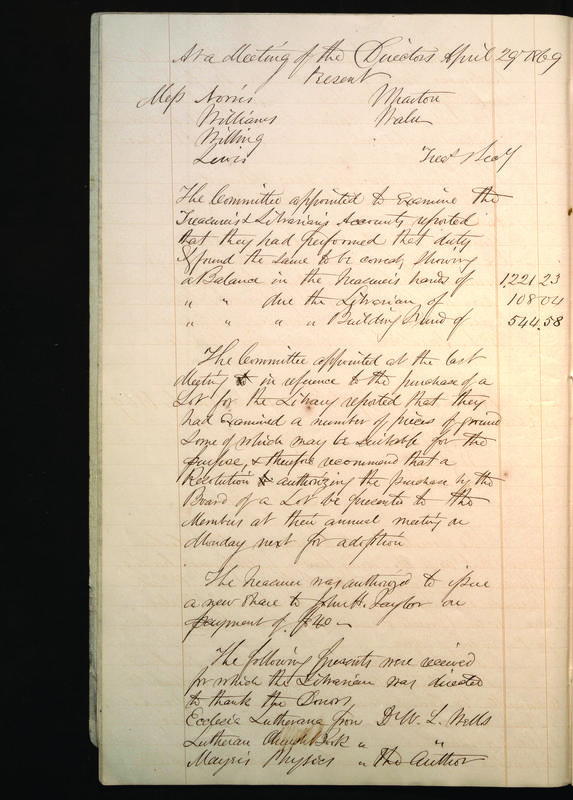 At a Meeting of the Directors April 29th 1869
Present
Mess Norris Wharton
Williams Waln
Willing
Lewis Treas & Secy
The Committee appointed to Examine the
Treasurers & Librarians Accounts reported
that they had performed that duty
& found the same to be correct, showing
a Balance in the Treasurers hands of 1,221.23
" " due the Librarian of 108 04
" " " " Building Fund of 544.58
The Committee appointed at the last
Meeting in reference to the purchase of a
Lot for the Library reported that they
had Examined a number of pieces of ground
some of which may be suitable for the
purpose, & therefore recommend that a
Resolution authorizing the purchase by the
Board of a Lot be presented to the
Members at their annual meeting on
Monday next for adoption
The Treasurer was authorized to issue
a new Share to John H. Taylor on
payment of $40 —
The following presents were received
for which the Librarian was directed
to thank the Donors
Ecclesia Lutherana from Dr W. L. Wells
Lutheran Church Book " "
Mayers Physics " The Author